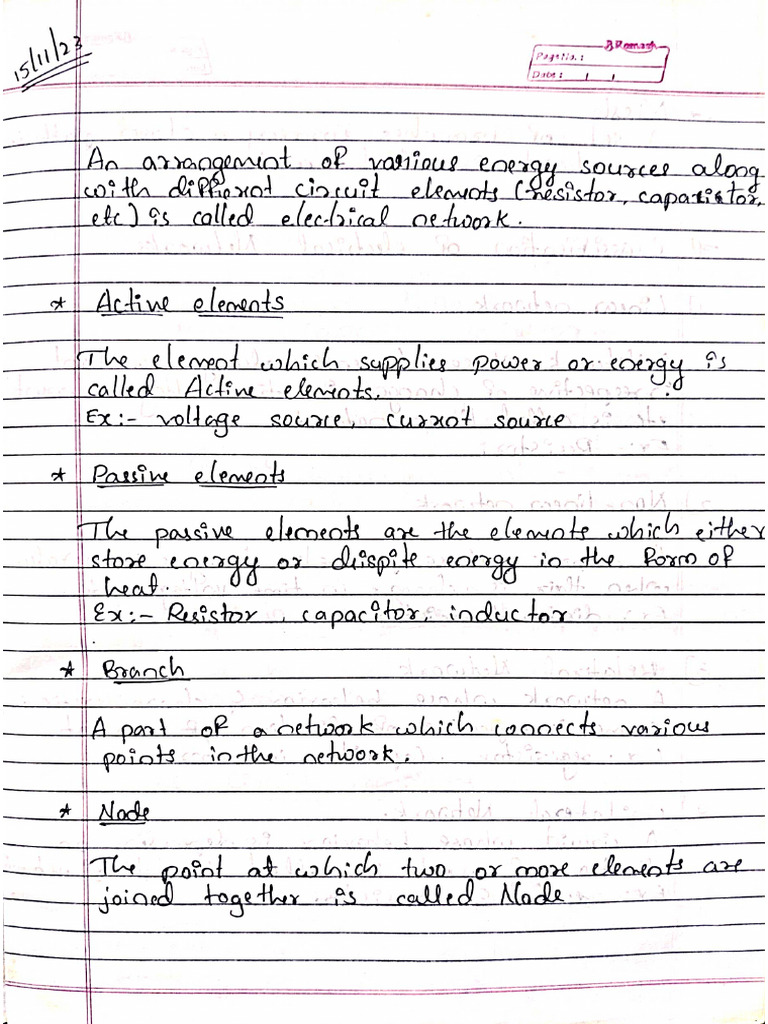 15/11/23
B Romash
Page No. :
Date :    /    /
An arrangement of various energy sources along
with different circuit elements (resistor, capacistor,
etc) is called electrical network.
* Active elements
The element which supplies power or energy is
called Active elements.
Ex:- voltage source, current source
* Passive elements
The passive elements are the elements which either
store energy or disspite energy in the form of
heat.
Ex:- Resistor, capacitor, inductor
* Branch
A part of a network which connects various
points in the network.
* Node
The point at which two or more elements are
joined together is called Node